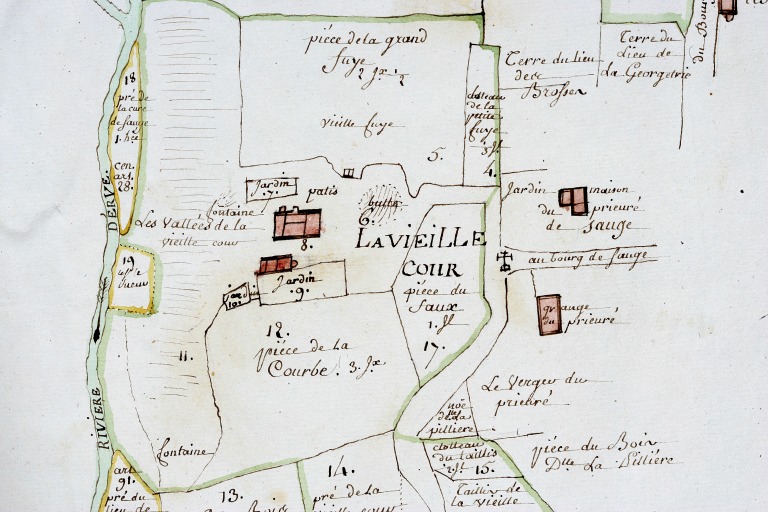 piéce de la grand
fuye
2 Jx ½
vieille fuye
5.
closteau
de la
petite
fuye
4.
Terre du lieu
des
Brosses
Terre du
Lieu de
La Georgetrie
18
pré de
la cure
de sauge
cen.
art.
28.
RIVIERE D'ERVE.
Jardin
7.
patis
butte
6.
fontaine
Les Vallées de la
vieille cour
8.
LA VIEILLE
COUR
Jardin
du
maison
prieuré
de Sauge
au bourg de Sauge
19
Jardin
9.
jardin
10.
piéce du
faux
17.
grange
du prieuré
11.
12.
piéce de la
Courbe. 3. Jx
Le Verger du
prieuré
noë
de la
pilliere
fontaine
closteau
du taillis
15.
piéce du Bois
Dtte La Pilliére
Taillis de
la vieille
art.
91.
pré du
lieu de
13.
14.
pré de la
vieille cour